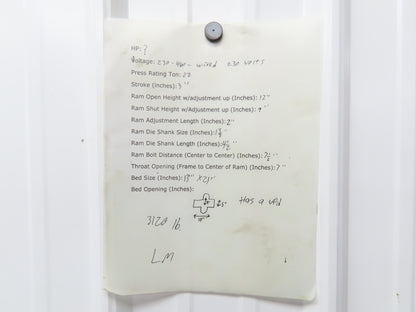 HP: ?
Voltage: 230-460- wired 230 volts
Press Rating Ton: 22
Stroke (Inches): 3"
Ram Open Height w/adjustment up (Inches): 12"
Ram Shut Height w/Adjustment up (Inches): 9"
Ram Adjustment Length (Inches): 2"
Ram Die Shank Size (Inches):
Ram Die Shank Length (Inches):
Ram Bolt Distance (Center to Center) (Inches): 7½"
Throat Opening (Frame to Center of Ram) (Inches): 7"
Bed Size (Inches): 13" x 21"
Bed Opening (Inches):
Has a VFD
3120 lb.
LM